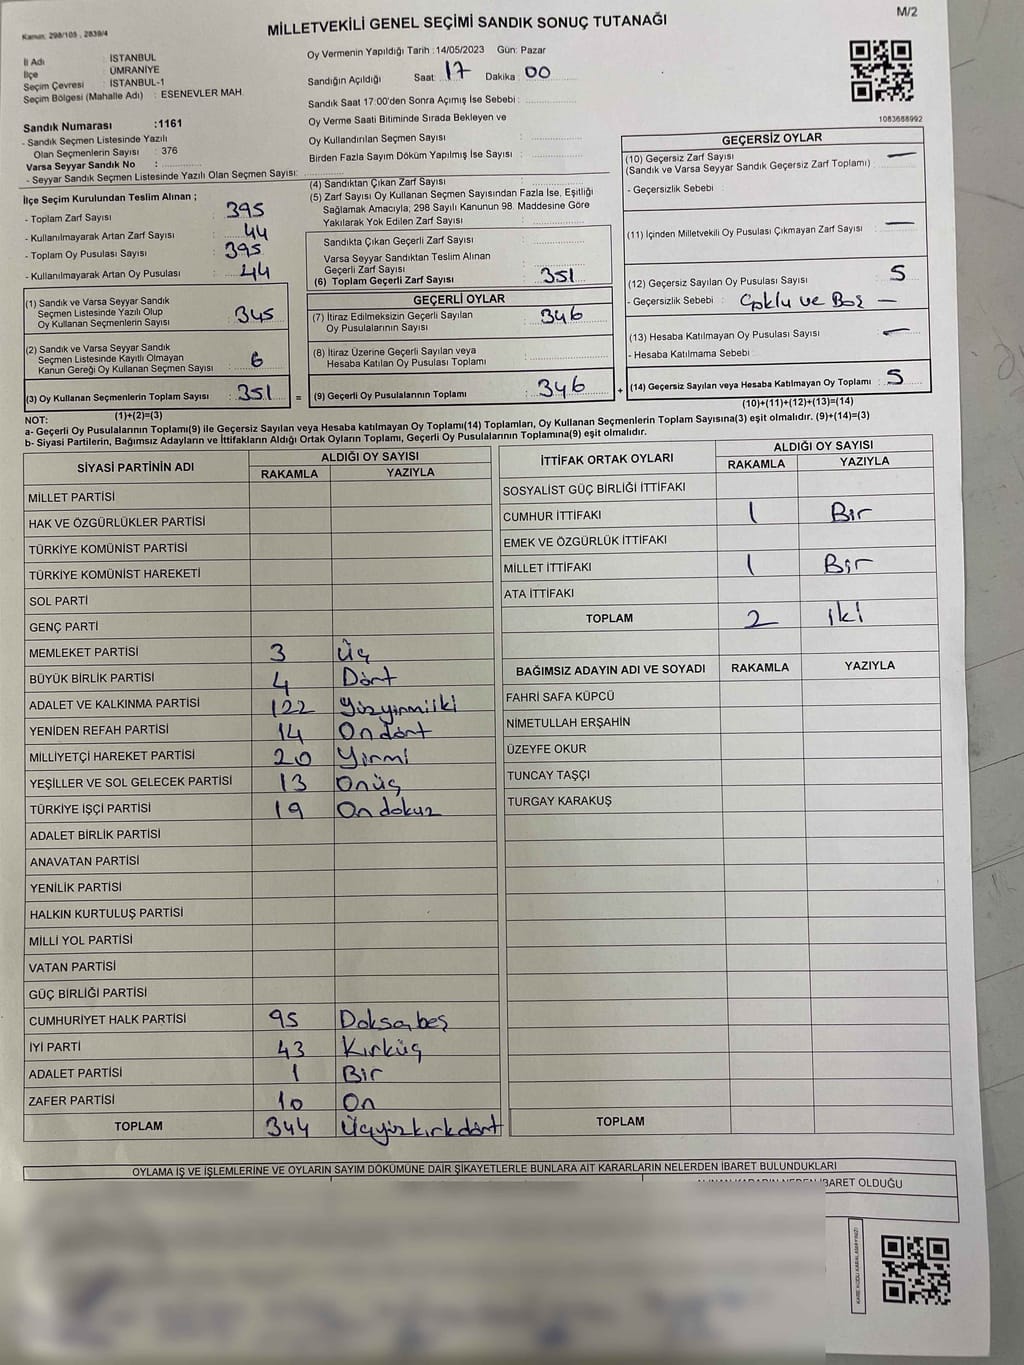 Kanun: 298/105 , 2839/4
MİLLETVEKİLİ GENEL SEÇİMİ SANDIK SONUÇ TUTANAĞI
M/2
İl Adı : İSTANBUL
İlçe : ÜMRANİYE
Seçim Çevresi : İSTANBUL-1
Seçim Bölgesi (Mahalle Adı) : ESENEVLER MAH.
Sandık Numarası :1161
- Sandık Seçmen Listesinde Yazılı
Olan Seçmenlerin Sayısı : 376
Varsa Seyyar Sandık No :
- Seyyar Sandık Seçmen Listesinde Yazılı Olan Seçmen Sayısı:
Oy Vermenin Yapıldığı Tarih :14/05/2023 Gün: Pazar
Sandığın Açıldığı Saat: 17 Dakika : 00
Sandık Saat 17:00'den Sonra Açımış İse Sebebi :
Oy Verme Saati Bitiminde Sırada Bekleyen ve
Oy Kullandırılan Seçmen Sayısı :
Birden Fazla Sayım Döküm Yapılmış İse Sayısı :
1083688992
İlçe Seçim Kurulundan Teslim Alınan ;
- Toplam Zarf Sayısı : 395
- Kullanılmayarak Artan Zarf Sayısı : 44
- Toplam Oy Pusulası Sayısı : 395
- Kullanılmayarak Artan Oy Pusulası : 44
(1) Sandık ve Varsa Seyyar Sandık
Seçmen Listesinde Yazılı Olup
Oy Kullanan Seçmenlerin Sayısı : 345
(2) Sandık ve Varsa Seyyar Sandık
Seçmen Listesinde Kayıtlı Olmayan
Kanun Gereği Oy Kullanan Seçmen Sayısı : 6
(3) Oy Kullanan Seçmenlerin Toplam Sayısı : 351 =
(1)+(2)=(3)
(4) Sandıktan Çıkan Zarf Sayısı :
(5) Zarf Sayısı Oy Kullanan Seçmen Sayısından Fazla İse, Eşitliği
Sağlamak Amacıyla, 298 Sayılı Kanunun 98. Maddesine Göre
Yakılarak Yok Edilen Zarf Sayısı :
Sandıkta Çıkan Geçerli Zarf Sayısı :
Varsa Seyyar Sandıktan Teslim Alınan
Geçerli Zarf Sayısı :
(6) Toplam Geçerli Zarf Sayısı : 351
GEÇERLİ OYLAR
(7) İtiraz Edilmeksizin Geçerli Sayılan
Oy Pusulalarının Sayısı : 346
(8) İtiraz Üzerine Geçerli Sayılan veya
Hesaba Katılan Oy Pusulası Toplamı :
(9) Geçerli Oy Pusulalarının Toplamı : 346 +
GEÇERSİZ OYLAR
(10) Geçersiz Zarf Sayısı : —
(Sandık ve Varsa Seyyar Sandık Geçersiz Zarf Toplamı)
- Geçersizlik Sebebi :
(11) İçinden Milletvekili Oy Pusulası Çıkmayan Zarf Sayısı : —
(12) Geçersiz Sayılan Oy Pusulası Sayısı : 5
- Geçersizlik Sebebi : Çoklu ve Boş —
(13) Hesaba Katılmayan Oy Pusulası Sayısı : —
- Hesaba Katılmama Sebebi :
(14) Geçersiz Sayılan veya Hesaba Katılmayan Oy Toplamı : 5
(10)+(11)+(12)+(13)=(14)
NOT:
a- Geçerli Oy Pusulalarının Toplamı(9) ile Geçersiz Sayılan veya Hesaba katılmayan Oy Toplamı(14) Toplamları, Oy Kullanan Seçmenlerin Toplam Sayısına(3) eşit olmalıdır. (9)+(14)=(3)
b- Siyasi Partilerin, Bağımsız Adayların ve İttifakların Aldığı Ortak Oyların Toplamı, Geçerli Oy Pusulalarının Toplamına(9) eşit olmalıdır.
SİYASİ PARTİNİN ADI ALDIĞI OY SAYISI
RAKAMLA YAZIYLA
MİLLET PARTİSİ
HAK VE ÖZGÜRLÜKLER PARTİSİ
TÜRKİYE KOMÜNİST PARTİSİ
TÜRKİYE KOMÜNİST HAREKETİ
SOL PARTİ
GENÇ PARTİ
MEMLEKET PARTİSİ 3 Üç
BÜYÜK BİRLİK PARTİSİ 4 Dört
ADALET VE KALKINMA PARTİSİ 122 Yüzyirmiiki
YENİDEN REFAH PARTİSİ 14 On dört
MİLLİYETÇİ HAREKET PARTİSİ 20 Yirmi
YEŞİLLER VE SOL GELECEK PARTİSİ 13 Onüç
TÜRKİYE İŞÇİ PARTİSİ 19 On dokuz
ADALET BİRLİK PARTİSİ
ANAVATAN PARTİSİ
YENİLİK PARTİSİ
HALKIN KURTULUŞ PARTİSİ
MİLLİ YOL PARTİSİ
VATAN PARTİSİ
GÜÇ BİRLİĞİ PARTİSİ
CUMHURİYET HALK PARTİSİ 95 Doksabeş
İYİ PARTİ 43 Kırküç
ADALET PARTİSİ 1 Bir
ZAFER PARTİSİ 10 On
TOPLAM 344 Üçyüzkırkdört
İTTİFAK ORTAK OYLARI ALDIĞI OY SAYISI
RAKAMLA YAZIYLA
SOSYALİST GÜÇ BİRLİĞİ İTTİFAKI
CUMHUR İTTİFAKI 1 Bir
EMEK VE ÖZGÜRLÜK İTTİFAKI
MİLLET İTTİFAKI 1 Bir
ATA İTTİFAKI
TOPLAM 2 iki
BAĞIMSIZ ADAYIN ADI VE SOYADI RAKAMLA YAZIYLA
FAHRİ SAFA KÜPCÜ
NİMETULLAH ERŞAHİN
ÜZEYFE OKUR
TUNCAY TAŞÇI
TURGAY KARAKUŞ
TOPLAM
OYLAMA İŞ VE İŞLEMLERİNE VE OYLARIN SAYIM DÖKÜMÜNE DAİR ŞİKAYETLERLE BUNLARA AİT KARARLARIN NELERDEN İBARET BULUNDUKLARI
İBARET OLDUĞU